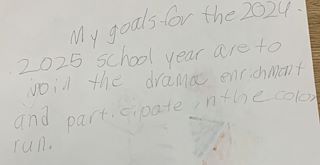 My goals for the 2024-
2025 school year are to
join the drama enrichment
and participate in the color
run.